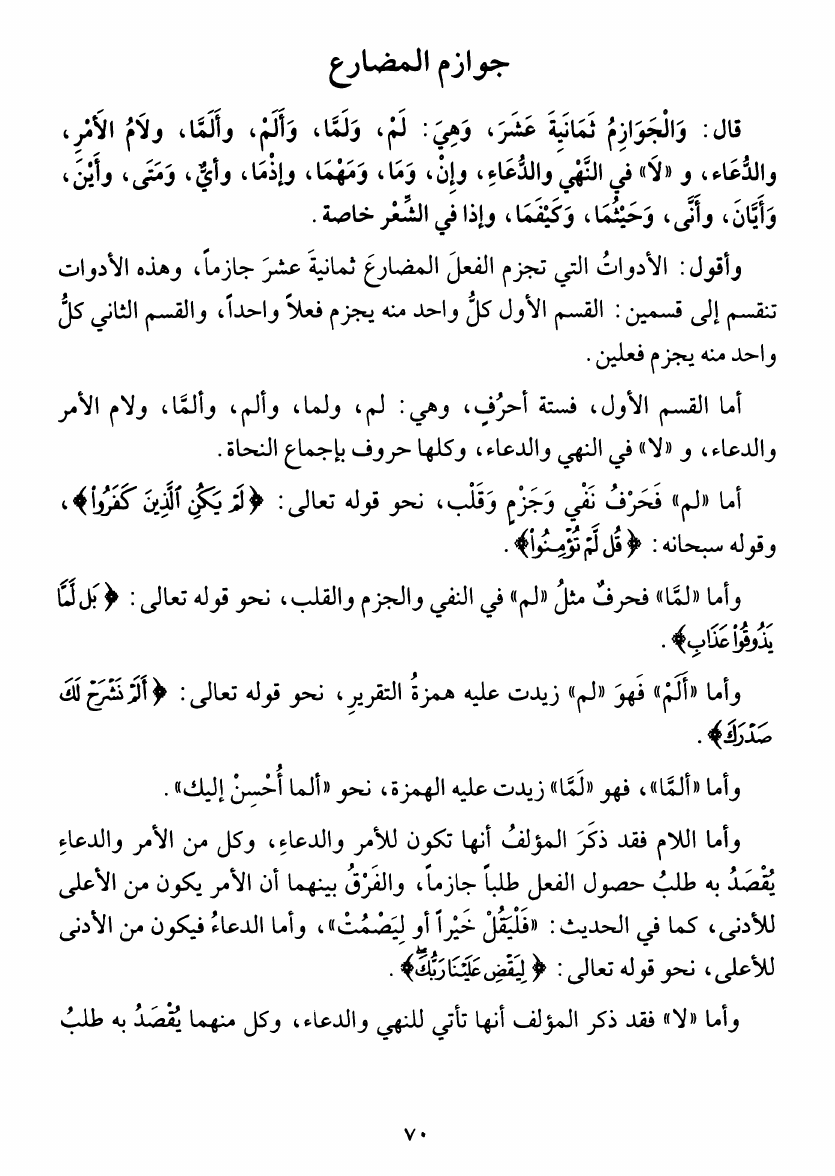 جوازم المضارع
قال: وَالْجَوَازِمُ ثَمَانَيِةَ عَشَرَ، وَهِيَ: لَمْ، وَلَمَّا، وَأَلَمْ، وأَلَمَّا، ولامُ الأَمْرِ،
والدُّعَاء، و «لاَ» في النَّهْيِ والدُّعَاءِ، وإِنْ، وَمَا، وَمَهْمَا، وإذْمَا، وأيٌّ، وَمَتَى، وأَيْنَ،
وَأَيَّانَ، وأَنَّى، وَحَيْثُمَا، وَكَيْفَمَا، وإذا في الشِّعْر خاصة.
وأقول: الأدواتُ التي تجزم الفعلَ المضارعَ ثمانيةَ عشرَ جازماً، وهذه الأدوات
تنقسم إلى قسمين: القسم الأول كلُّ واحد منه يجزم فعلاً واحداً، والقسم الثاني كلُّ
واحد منه يجزم فعلين.
أما القسم الأول، فستة أحرُفٍ، وهي: لم، ولما، وألم، وألمَّا، ولام الأمر
والدعاء، و «لا» في النهي والدعاء، وكلها حروف بإجماع النحاة.
أما «لم» فَحَرْفُ نَفْي وَجَزْمٍ وَقَلْب، نحو قوله تعالى: ﴿لَمْ يَكُنِ ٱلَّذِينَ كَفَرُواْ﴾،
وقوله سبحانه: ﴿قُل لَّمْ تُؤْمِنُواْ﴾.
وأما «لمَّا» فحرفٌ مثلُ «لم» في النفي والجزم والقلب، نحو قوله تعالى: ﴿بَل لَّمَّا
يَذُوقُواْ عَذَابِ﴾.
وأما «أَلَمْ» فَهوَ «لم» زيدت عليه همزةُ التقريرِ، نحو قوله تعالى: ﴿أَلَمْ نَشْرَحْ لَكَ
صَدْرَكَ﴾.
وأما «ألمَّا»، فهو «لَمَّا» زيدت عليه الهمزة، نحو «ألما أُحْسِنْ إليك».
وأما اللام فقد ذكَرَ المؤلفُ أنها تكون للأمر والدعاءِ، وكل من الأمر والدعاءِ
يُقْصَدُ به طلبُ حصول الفعل طلباً جازماً، والفَرْقُ بينهما أن الأمر يكون من الأعلى
للأدنى، كما في الحديث: «فَلْيَقُلْ خَيْراً أو لِيَصْمُتْ»، وأما الدعاءُ فيكون من الأدنى
للأعلى، نحو قوله تعالى: ﴿لِيَقْضِ عَلَيْنَا رَبُّكَۖ﴾.
وأما «لا» فقد ذكر المؤلف أنها تأتي للنهي والدعاء، وكل منهما يُقْصَدُ به طلبُ
٧٠